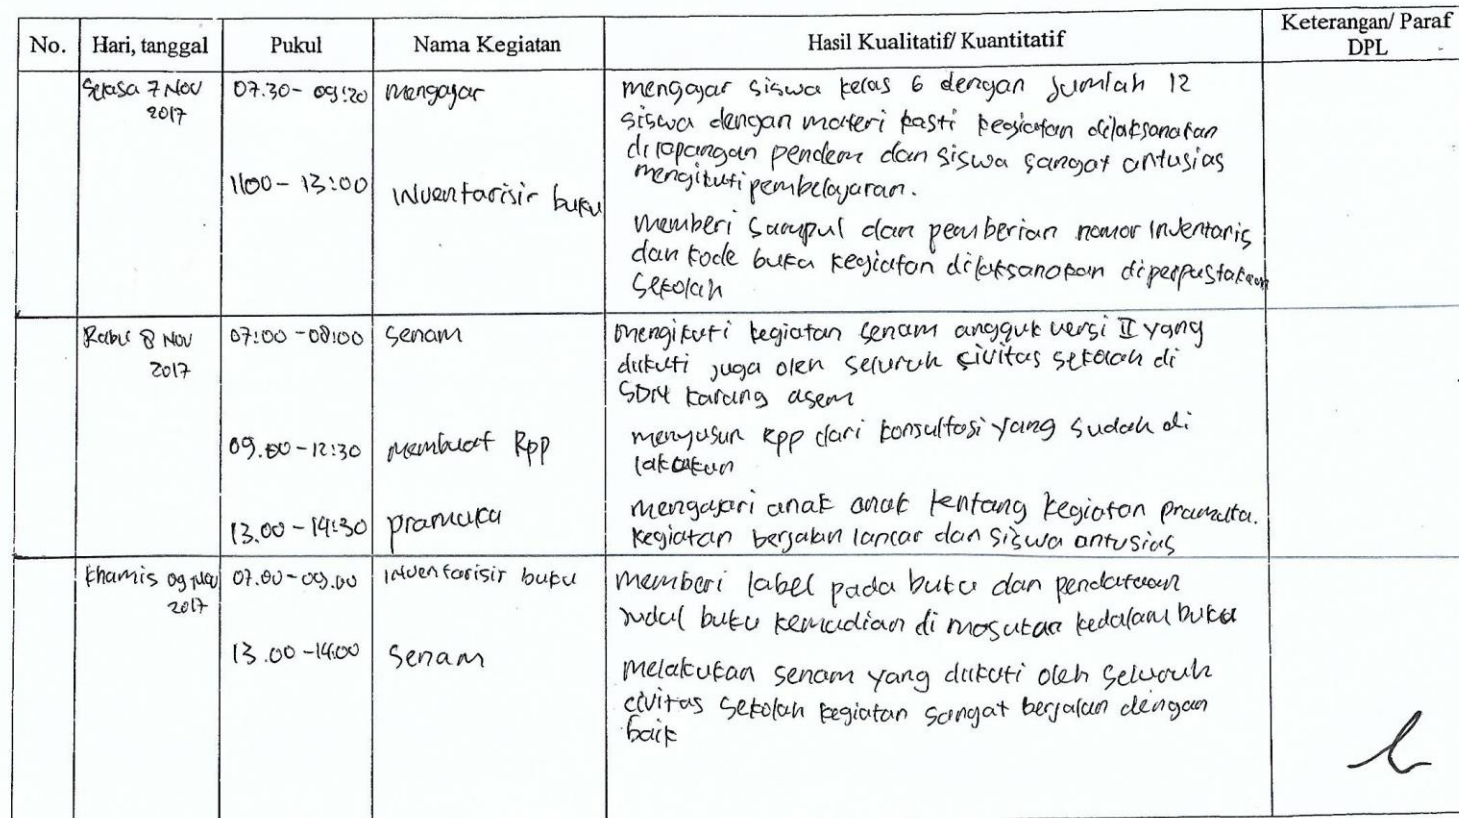 No. Hari, tanggal Pukul Nama Kegiatan Hasil Kualitatif/ Kuantitatif Keterangan/ Paraf
DPL
Selasa 7 Nov 07.30 - 09:20 mengajar mengajar siswa kelas 6 dengan jumlah 12
2017 siswa dengan materi kasti kegiatan dilaksanakan
dilapangan pendem dan siswa sangat antusias
1100 - 13:00 Inventarisir buku mengikuti pembelajaran.
memberi sampul dan pemberian nomor inventaris
dan kode buku kegiatan dilaksanakan diperpustakaan
sekolah
Rabu 8 Nov 07:00 - 08:00 senam mengikuti kegiatan senam angguk versi II yang
2017 diikuti juga oleh seluruh civitas sekolah di
SDN karang asem
09.00 - 12:30 membuat Rpp menyusun Rpp dari konsultasi yang sudah di
lakukan
13.00 - 14:30 pramuka mengajari anak anak tentang kegiatan pramuka.
kegiatan berjalan lancar dan siswa antusias
khamis 09 Nov 07.00 - 09.00 inventarisir buku memberi label pada buku dan pendataan
2017 judul buku kemudian di masukan kedalam buku
13.00 - 14.00 Senam melakukan senam yang diikuti oleh seluruh
civitas sekolah kegiatan sangat berjalan dengan
baik